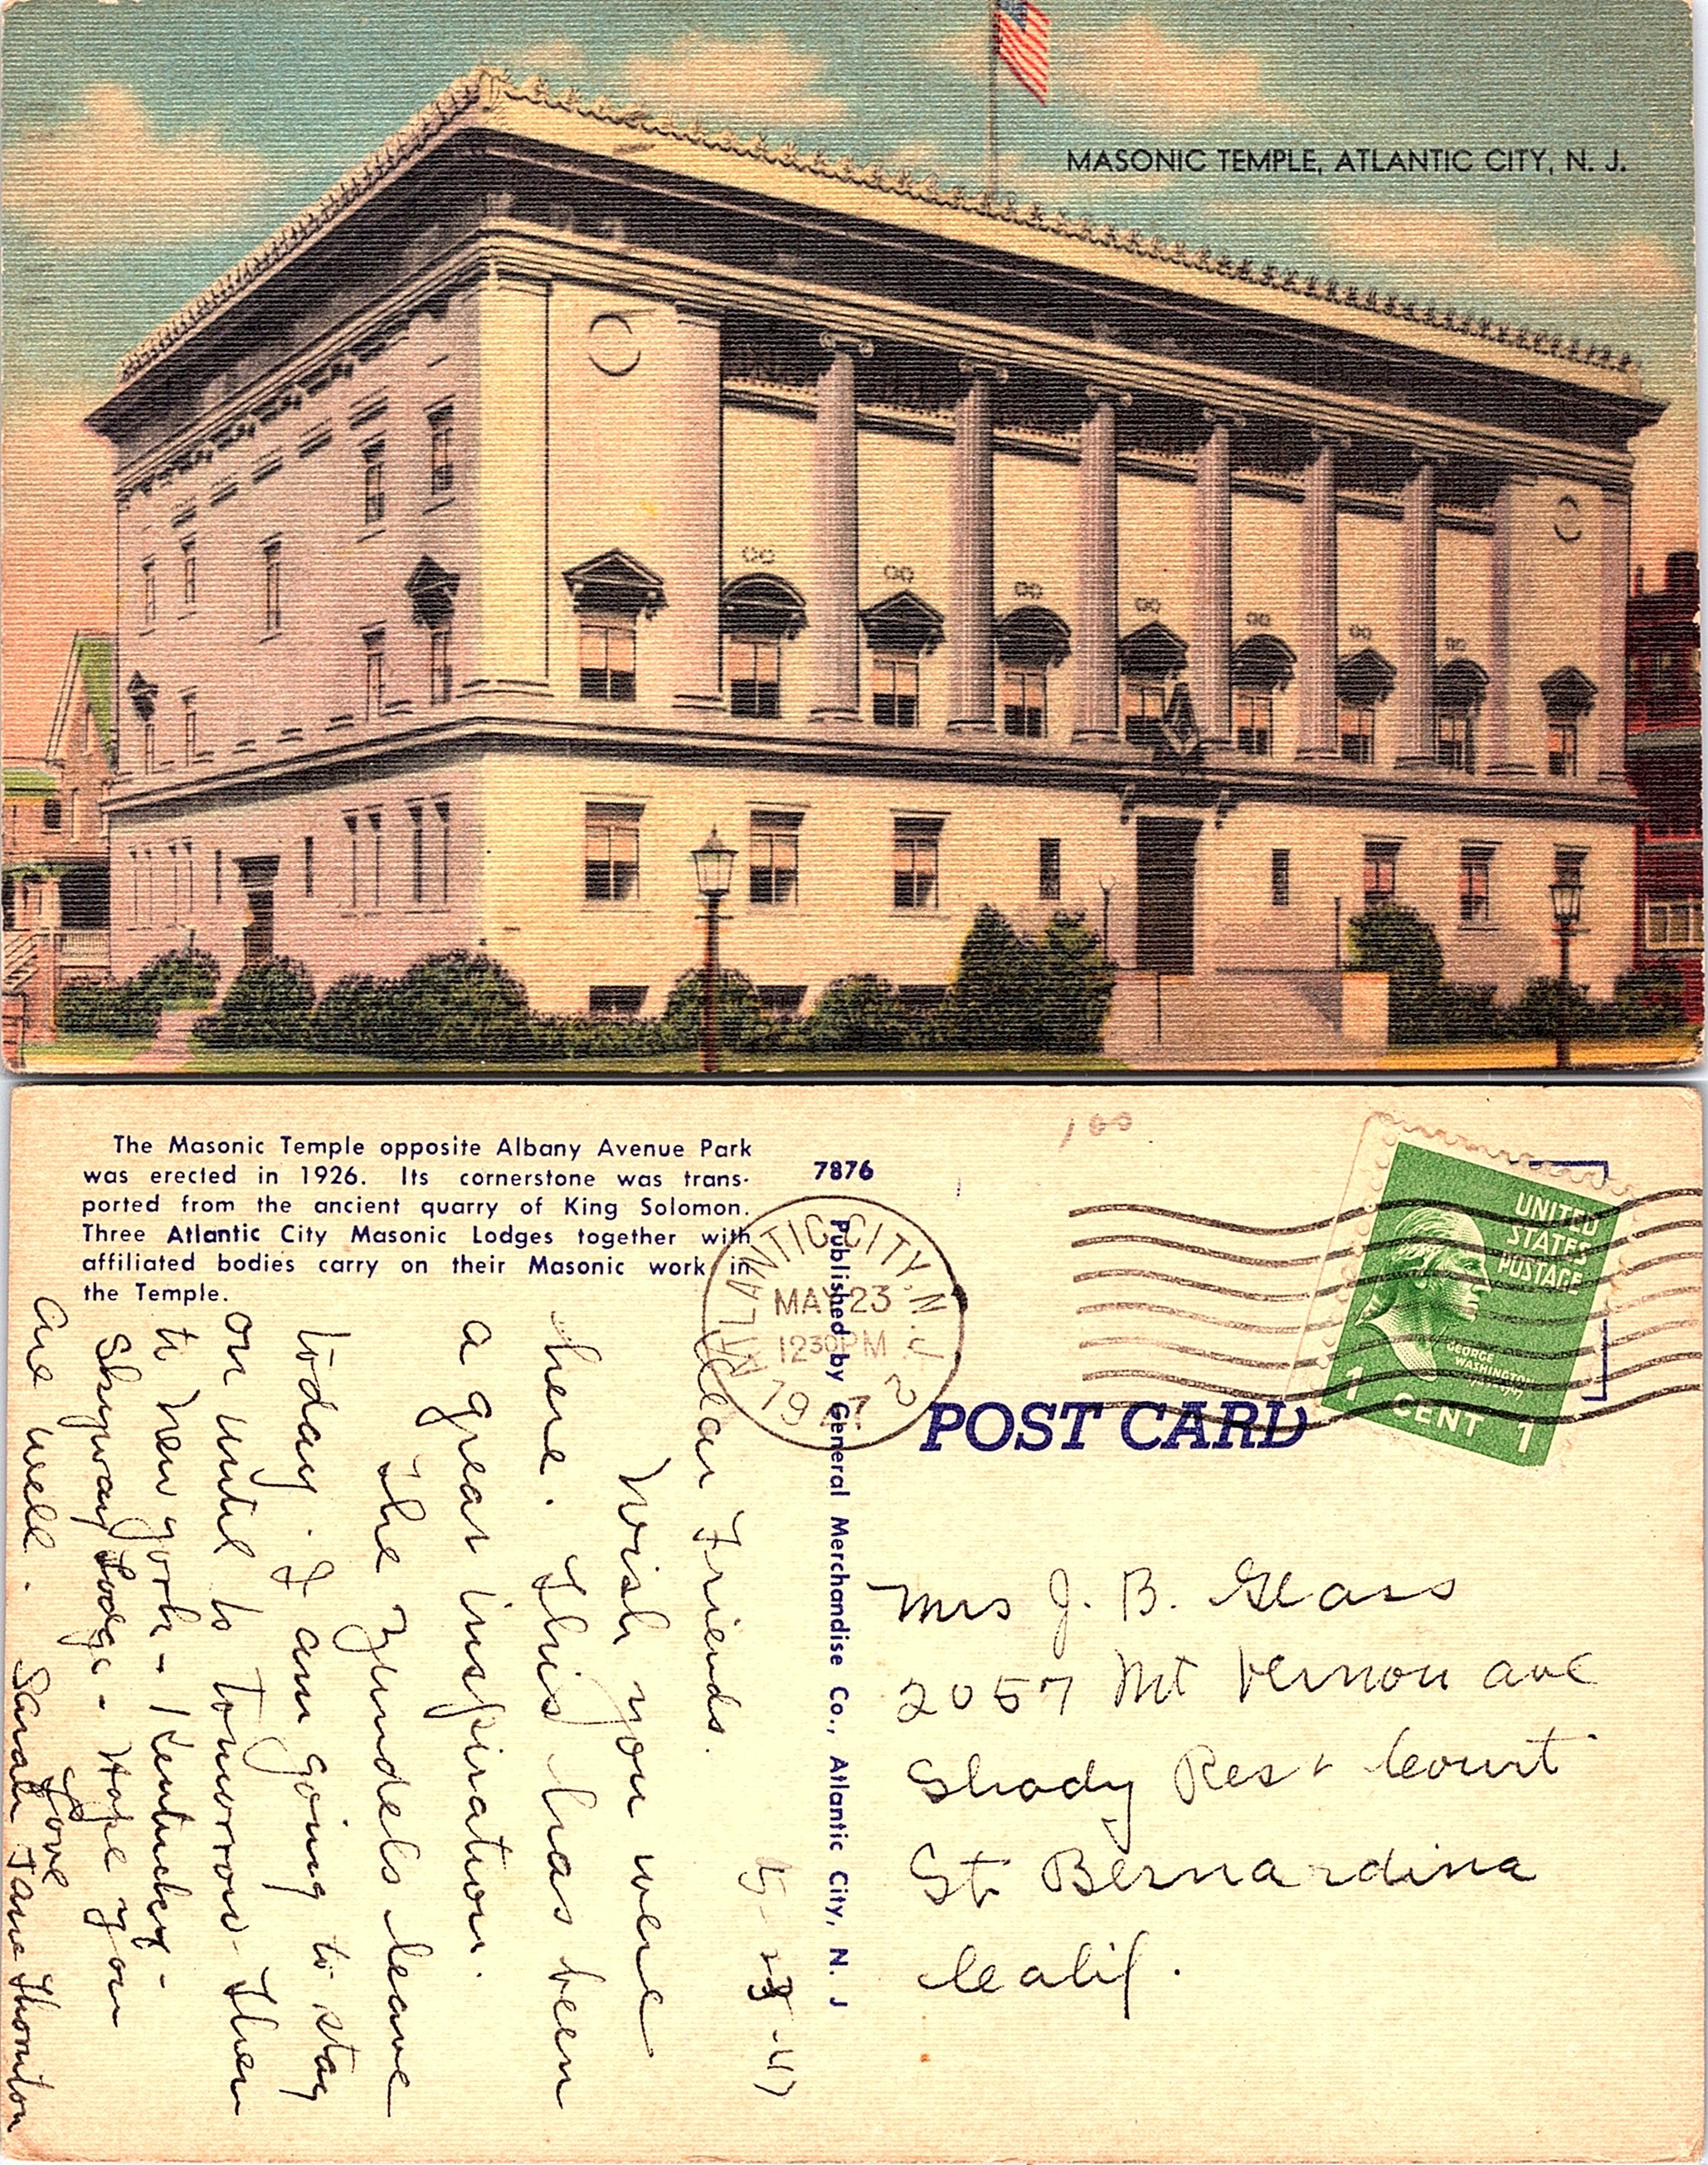 MASONIC TEMPLE, ATLANTIC CITY, N. J.
The Masonic Temple opposite Albany Avenue Park
was erected in 1926. Its cornerstone was trans-
ported from the ancient quarry of King Solomon.
Three Atlantic City Masonic Lodges together with
affiliated bodies carry on their Masonic work in
the Temple.
7876
Published by General Merchandise Co., Atlantic City, N. J
ATLANTIC CITY, N.J.
MAY 23
1230PM
1947
2
UNITED
STATES
POSTAGE
GEORGE
WASHINGTON
1 CENT 1
POST CARD
100
5-23-47
Dear Friends.
Wish you were
here. This has been
a great inspiration.
The Zundels leave
today. I am going to stay
on until to tomorrow then
to New York - Kentucky -
Lodge - Hope you
are well.
Love
Sarah Jane Thornton
Mrs J. B. Glass
2057 Mt Vernon ave
Shady Rest Court
St Bernardina
Calif.